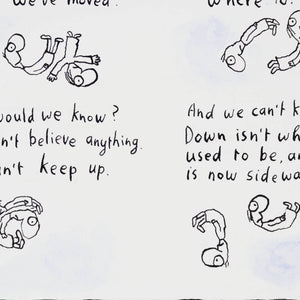 we've moved.
Where is
would we know?
believe anything.
keep up.
And we can't
Down isn't
used to be,
is now